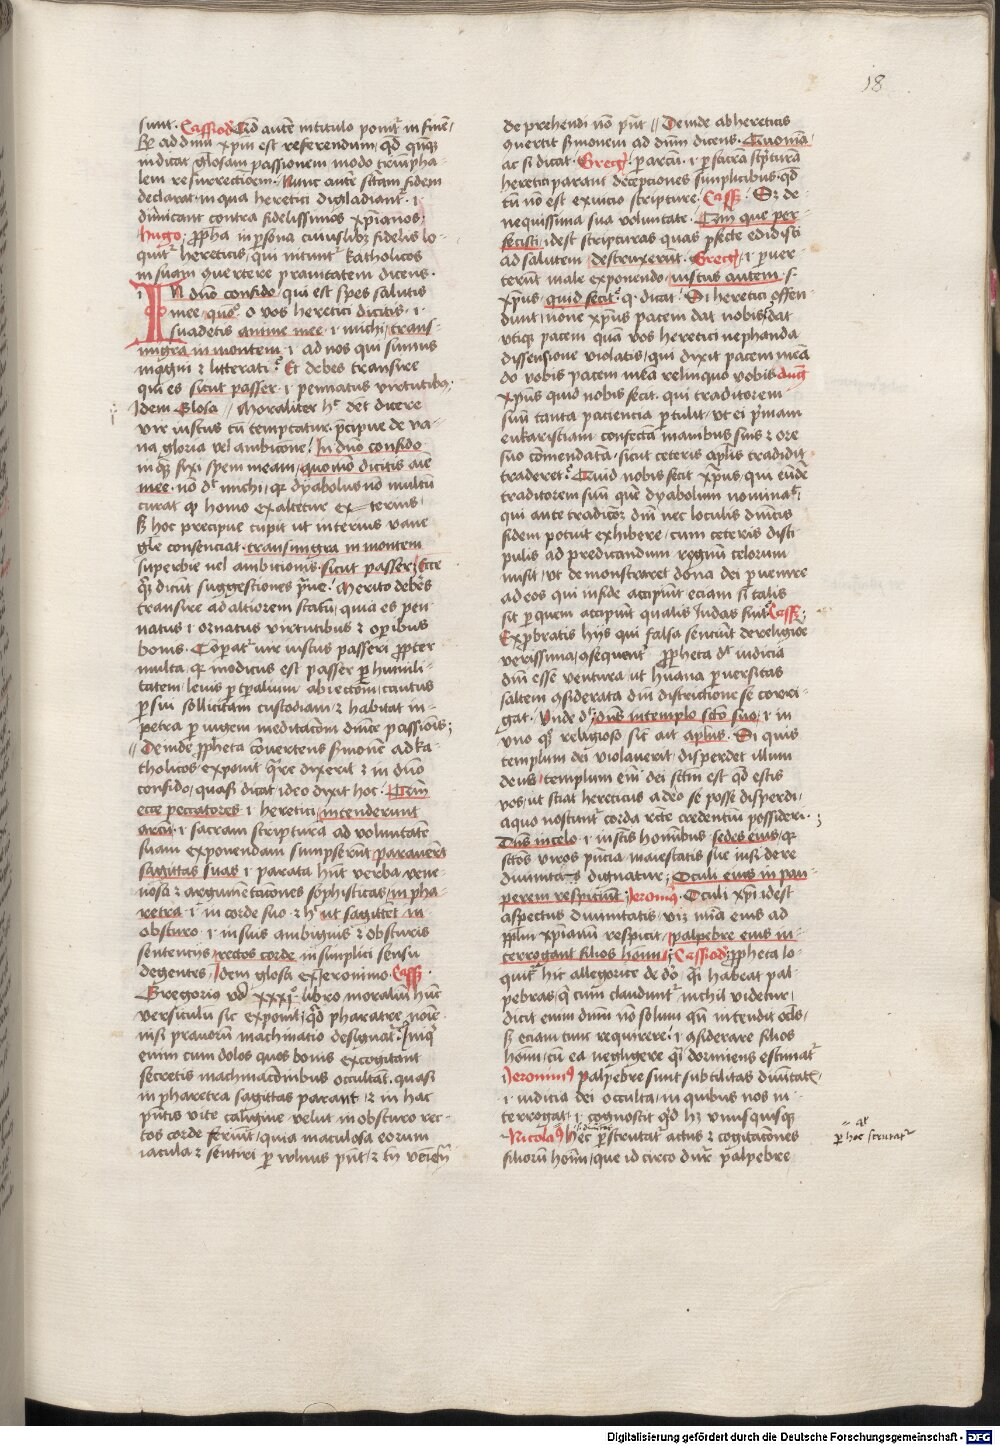 18
sunt. Cassiod9 Qd autē in titulo ponit᷑ in finē/
ad dnm xp̄m est referendum, qd quoqȝ
indicat glosam passionem modo triūpha-
lem resurrectionem. Nunc autē fidem
declarat, in qua heretici digladiant᷑ .i.
dimicant contra fidelissimos xp̄ianos.
Hugo: ppha in psona cuiuslibȝ fidelis lo-
quit᷑ hereticis, qui nitunt᷑ katholicos
in suam quertere prauitatem dicens.
IN dn̄o confido, qui est spes salutis
mee, quo o vos heretici dicitis .i.
suadetis anime mee .i. michi, trans-
migra in montem .i. ad nos qui sumus
magni ⁊ litterati. Et debes transire
quia es sicut passer .i. pennatus virtutibȝ.
Idem Glosa // Moraliter hͦ debet dicere
vir iustus cū temptatur precipue de va-
na gloria vel ambicione. In dn̄o confido
in quo fixi spem meam, quomo dicitis aīe
mee. nō dꝛ michi, qꝛ dyabolus nō multū
curat qͥ homo exaltetur exterius
sȝ hoc precipue cupit ut interius vane
glē consenciat. transmigra in montem
superbie uel ambicionis. sicut passer. Ecce
dicūt suggestiones praue. Merito debes
transire ad altiorem statū, quia es pen
natus .i. ornatus virtutibus ⁊ opibus
bonis. Copat᷑ vir iustus passeri propter
multa, qꝛ modicus est passer p humili-
tatem, leuis p tpalium abiectiōem, cautus
p sui sollicitam custodiam, ⁊ habitat in
petra p iugem meditacōem diuine passionis;
// Deinde ppheta couertens sermonē ad ka-
tholicos, exponit quare dixerit ⁊ in dn̄o
confido, quasi dicat ideo dixit hoc. Qm̄
ecce peccatores .i. heretici, intenderunt
arcū .i. sacram scripturā ad voluntatē
suam exponendam sumpserūt, parauerūt
sagittas suas .i. parata hūt verba vene-
nosa ⁊ argumentaciones sophisticas, in pha
retra .i. in corde suo. ⁊ hͦ ut sagittēt in
obscuro .i. in suis ambiguis ⁊ obscuris
sentencijs, rectos corde in simplici sensu
degentes, Idem glosa ex Jeronimo. Cass
Gregorius vᵒ XXXIᵒ. libro moraliū hūc
versiculū sic exponit, qd pharetre noīe
nisi prauorum machinatio designat᷑. Iniqͥ
enim cum dolos quos bonis excogitant
secretis machinacōnibus occultāt. quasi
in pharetra sagittas parant, ⁊ in hac
pn̄tis vite caligine velut in obscuro rec-
tos corde feriūt, quia maculosa eorum
iacula ⁊ sentiri p vulnus pn̄t, ⁊ tn̄ veniētia
de prehendi nō pn̄t // Deinde ab hereticis
quertit sermonem ad dnm dicens. Quoniā
ac si dicat. Greg9. parcū .i. p sacrā scripturā
heretici parant decepciones simplicibus. qd
tn̄ nō est ex vicio scripture. Cass. Sȝ de
nequissima sua voluntate. Qm̄ que per-
fecisti, idest scripturas quas pfecte edidisti
ad salutem, destruxerūt. Greg9, .i. puer-
terūt male exponendo, iustus autem .s.
xp̄us, quid fecit. q. dicat. Si heretici offen
dunt, none xp̄us pacem dat nobis, dat
vtiqȝ pacem quā vos heretici nephanda
dissensione violatis, qui dixit pacem meā
do vobis pacem meā relinquo vobis Aug9
xp̄us quid nobis fecit. qui traditorem
suū tanta paciencia ptulit, ut ei primam
eukaristiam confectā manibus suis ⁊ ore
suo cōmendatā, sicut ceteris aplis tradidit
traderet. Quid nobis fecit xp̄us, qui eūdē
traditorem suū quē dyabolum nominat,
qui ante traditōꝝ dn̄i nec loculis dn̄icis
fidem potuit exhibere, cum ceteris disci
pulis ad predicandum regnū celorum
misit, ut demonstraret dona dei puenire
ad eos qui in fide accipiūt eciam si talis
sit p quem accipiūt qualis Iudas fuit. Cass;
Exprobratis hijs qui falsa senciūt de religiōe
verissima, qsequent᷑ ppheta dt iudicia
dn̄i esse ventura. ut hūana puersitas
saltem qsiderata dn̄i districtione se corri-
gat. Vnde dꝛ. dn̄s in templo scto suo, .i. in
vno quoqȝ religioso sic ait aplus. Si quis
templum dei violauerit, disperdet illum
deus, templum enī dei sctm est qd estis
vos, ut sciat hereticus a deo se posse disperdi,
a quo noscunt᷑ corda recte credentiū possideri.
Dn̄s in celo .i. in sctis hominibus sedes eius, qꝛ
sctōs viros pn̄cia maiestatis sue insidere
diuinitas dignatur; Oculi eius in pau
perem respiciūt; Jeronimus. Oculi xp̄i idest
aspectus diuinitatis, ad
pplm xp̄ianū respicit, palpebre eius in-
terrogant filios homīu; Cassiod9; ppheta lo-
quit᷑ hic allegorice de deo, qͣsi habeat pal-
pebras, que cum claudunt᷑ nichil videtur,
dicit enim dn̄m nō solum qn̄ intendit oclis,
sȝ eciam tunc requirere .i. qsiderare filios
homīu, cū ea negligere qͣsi dormiens estimat᷑
Jeronimus palpebre sunt subtilitas diuinitatis
.i. iudicia dei occulta, in quibus nos in-
terrogat, .i. cognoscit quid hȝ vnusquisqȝ
Nicolaus Hec pscrutat᷑ actus ⁊ cogitacōnes
p hoc scrutat᷑
filiorum homīu, que id circo dicūt᷑ palpebre,
Digitalisierung gefördert durch die Deutsche Forschungsgemeinschaft - DFG